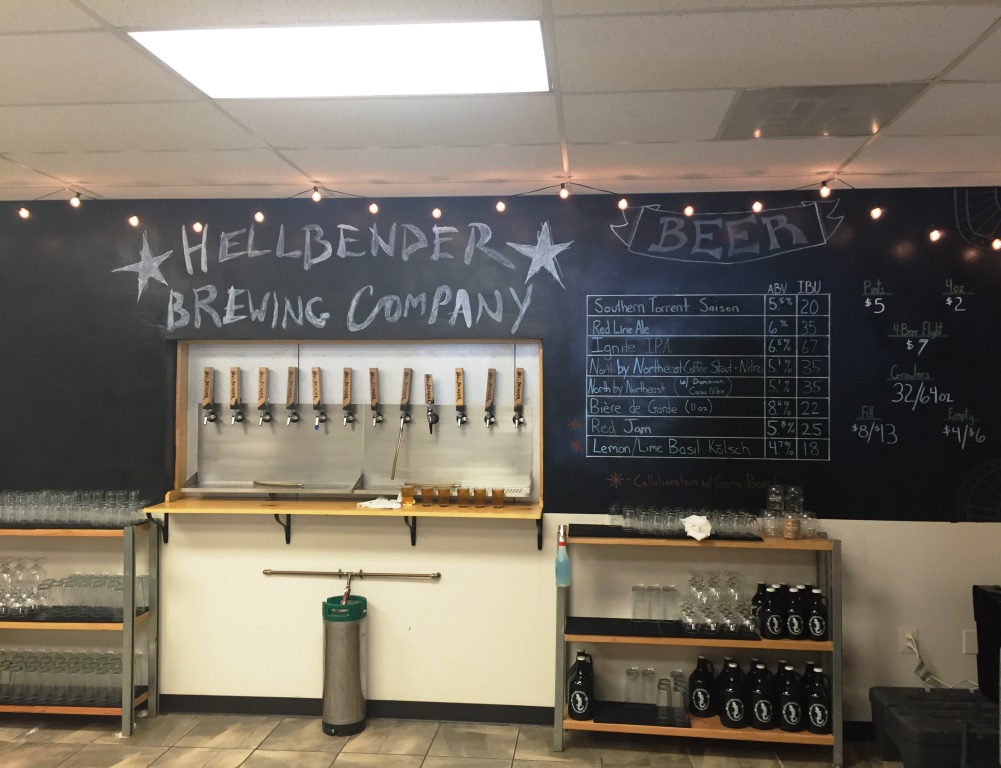 HELLBENDER
BREWING COMPANY
BEER
ABV IBU
Southern Torrent Saison 20
Red Line Ale 6% 35
Ignite IPA 6.5% 67
North by Northeast Coffee Stout - Nitro 5.1% 35
North by Northeast (w/ Dominican Cacao Nibs) 5.1% 35
Bière de Garde (11oz) 22
* Red Jam 5.8% 25
* Lemon/Lime Basil Kölsch 4.7% 18
* - Collaboration w/
Pints
$5
4oz
$2
4 Beer Flight
$7
Growlers
32/64oz
Fill
$8/$13
Empty
$4/$6